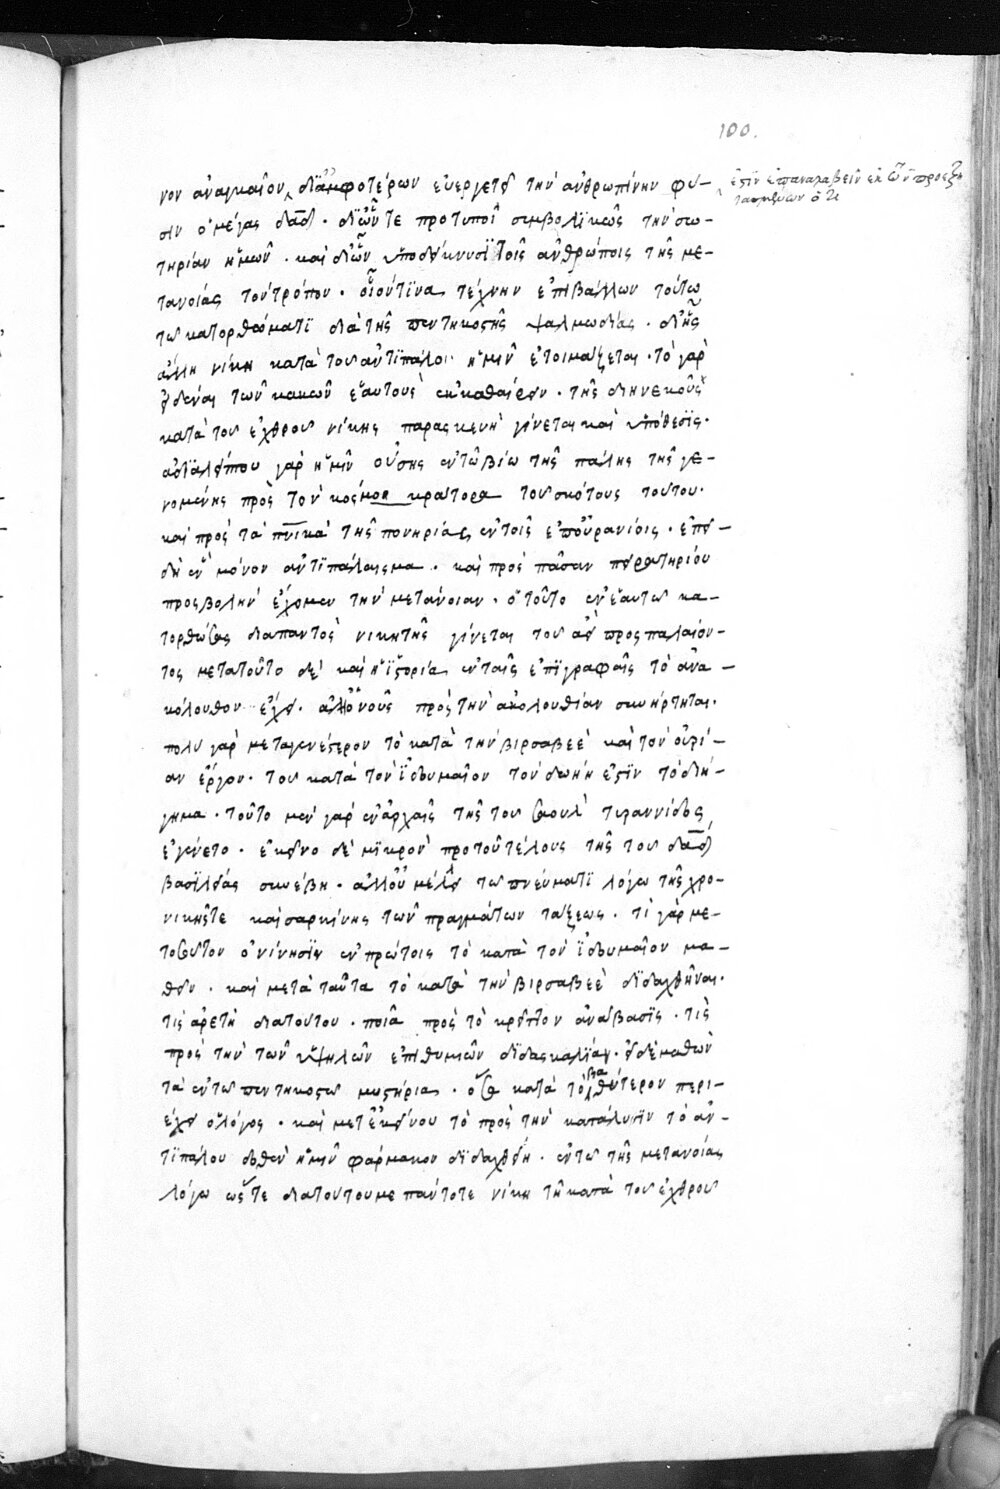 100.
νον ἀναγκαῖον, διἀμφοτέρων εὐεργετεῖ τὴν ἀνθρωπίνην φύ-
ἐστὶν ἐπαναλαβεῖν ἐκ τῶν προεξη
τασμένων ὅτι
σιν ὁ μέγας δαδ · διὧν τε προτυποῖ συμβολϊκῶς τὴν σω-
τηρίαν ἡμῶν · καὶ διὧν ὑποδείκνυσϊ τοῖς ἀνθρώποις τῆς με-
τανοίας τὸν τρόπον · οἱονείτϊνα τέχνην ἐπιβάλλων τούτω
τω κατορθώματϊ διὰ τῆς πεντηκοστῆς ψαλμωδίας · διῆς
ἄλλη νίκη κατὰ του ἀντϊπάλου ἡμῖν ἑτοιμάζεται · τὸ γὰρ
εἰδέναι τῶν κακῶν ἑαυτοὺς ἐκκαθαίρειν · τῆς διηνεκοῦς
κατὰ του ἐχθρου νίκης παρασκευὴ γίνεται καὶ ὑπόθεσϊς ·
ἀδϊαλείπτου γὰρ ἡμῖν οὔσης ἐντῶ βίω τῆς πάλης τῆς γε-
νομένης πρὸς τὸν κοσμοκράτορα του σκότους τούτου ·
καὶ πρὸς τὰ πνικὰ τῆς πονηρίας ἐντοῖς ἐπουρανίοις · ἐπει-
δὴ ἓν μόνον ἀντϊπάλαισμα · καὶ πρὸς πᾶσαν πειρατηρίου
προσβολὴν ἔχομεν τὴν μετάνοιαν · ὁ τοῦτο ἐν ἑαυτω κα-
τορθώσας διαπαντὸς νικητῆς γίνεται του ἀεὶ προσπαλαίον-
τος μετατοῦτο δὲ καὶ ἡ ϊστορία ἐνταῖς ἐπϊγραφαῖς τὸ ἀνα-
κόλουθον ἔχει · ἀλλ' ὁ νοῦς πρὸς τὴν ἀκολουθίαν συνήρτηται ·
πολυ γὰρ μεταγενέστερον τὸ κατὰ τὴν βιρσαβεὲ καὶ τὸν οὐρί-
αν ἔργον · του κατὰ τὸν ϊδουμαῖον τὸν δωὴκ ἐστϊν τὸ διή-
γημα · τοῦτο μὲν γὰρ ἐν ἀρχαῖς τῆς του σαουλ τυραννίδος
ἐγένετο · ἐκεῖνο δὲ μϊκρὸν πρὸ τοῦ τέλους τῆς του δαδ
βασϊλείας συνέβη · ἀλλ' οὐ μέλει τω πνεύματϊ λόγω τῆς χρο-
νικῆς τε καὶ σαρκίνης τῶν πραγμάτων τάξεως · τί γὰρ με
τοσοῦτον ὀνίνησϊν ἐν πρώτοις τὸ κατὰ τὸν ϊδουμαῖον μα-
θεῖν · καὶ μετὰ ταῦτα τὸ κατὰ τὴν βιρσαβεὲ διδαχθῆναι ·
τίς ἀρετὴ διατούτου · ποία πρὸς τὸ κρεῖττον ἀνάβασϊς · τίς
πρὸς τὴν τῶν ὑψηλῶν ἐπιθυμιῶν διδασκαλίαν · εἰ δὲ μαθὼν
τὰ ἐντω πεντηκοστῶ μυστήρια · ὅσα κατὰ τὸ βαθύτερον περι-
έχει ὁ λόγος · καὶ μετ ἐκείνου τὸ πρὸς τὴν κατάλυσϊν τὸ ἀν-
τϊπάλου δοθὲν ἡμῖν φάρμακον διδαχθείη · ἐντω τῆς μετανοίας
λόγω ὥστε διατούτου με πάντοτε νίκη τῆ κατὰ του ἐχθρου